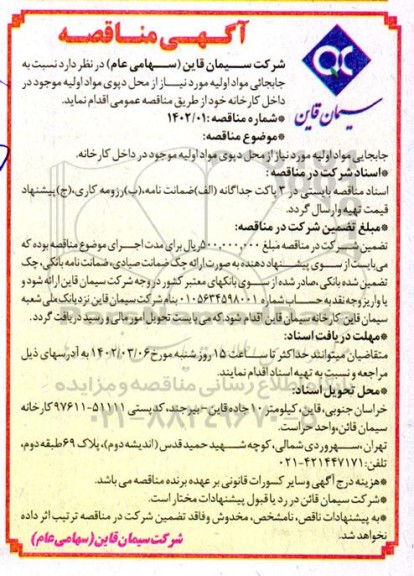 آگهی مناقصه
سیمان قاین
شرکت سیمان قاین (سهامی عام) در نظر دارد نسبت به
جابجائی مواد اولیه مورد نیاز از محل دپوی مواد اولیه موجود در
داخل کارخانه خود از طریق مناقصه عمومی اقدام نماید.
*شماره مناقصه: ۱۴۰۲/۰۱
*موضوع مناقصه:
جابجایی مواد اولیه مورد نیاز از محل دپوی مواد اولیه موجود در داخل کارخانه.
*اسناد شرکت در مناقصه:
اسناد مناقصه بایستی در ۳ پاکت جداگانه (الف) ضمانت نامه، (ب) رزومه کاری، (ج) پیشنهاد
قیمت تهیه و ارسال گردد.
*مبلغ تضمین شرکت در مناقصه:
تضمین شرکت در مناقصه مبلغ ۵۰۰,۰۰۰,۰۰۰ ریال برای مدت اجرای موضوع مناقصه بوده که
می بایست از سوی پیشنهاد دهنده به صورت ارائه چک ضمانت صیادی، ضمانت نامه بانکی، چک
تضمین شده بانکی، صادر شده از سوی بانکهای معتبر کشور در وجه شرکت سیمان قاین ارائه شود و
یا واریز وجه نقد به حساب شماره ۰۱۰۵۶۳۴۵۹۸۰۰۱ بنام شرکت سیمان قاین نزد بانک ملی شعبه
سیمان قاین، کارخانه سیمان قاین اقدام شود که می بایست تحویل امور مالی و رسید دریافت گردد.
*مهلت دریافت اسناد:
متقاضیان میتوانند حداکثر تا ساعت ۱۵ روز شنبه مورخ ۱۴۰۲/۰۳/۰۶ به آدرسهای ذیل
مراجعه و نسبت به تهیه اسناد اقدام نمایند.
*محل تحویل اسناد:
خراسان جنوبی، قاین، کیلومتر ۱۰ جاده قاین - بیرجند، کد پستی ۵۱۱۱۱-۹۷۶۱۱ کارخانه
سیمان قائن، واحد حراست.
تهران، سهروردی شمالی، کوچه شهید حمید قدس (اندیشه دوم)، پلاک ۶۹ طبقه دوم،
تلفن: ۴۲۱۴۴۷۱۷۱-۰۲۱
*هزینه درج آگهی و سایر کسورات قانونی بر عهده برنده مناقصه می باشد.
*شرکت سیمان قائن در رد یا قبول پیشنهادات مختار است.
*به پیشنهادات ناقص، نامشخص، مخدوش و فاقد تضمین شرکت در مناقصه ترتیب اثر داده
نخواهد شد.
شرکت سیمان قاین (سهامی عام)